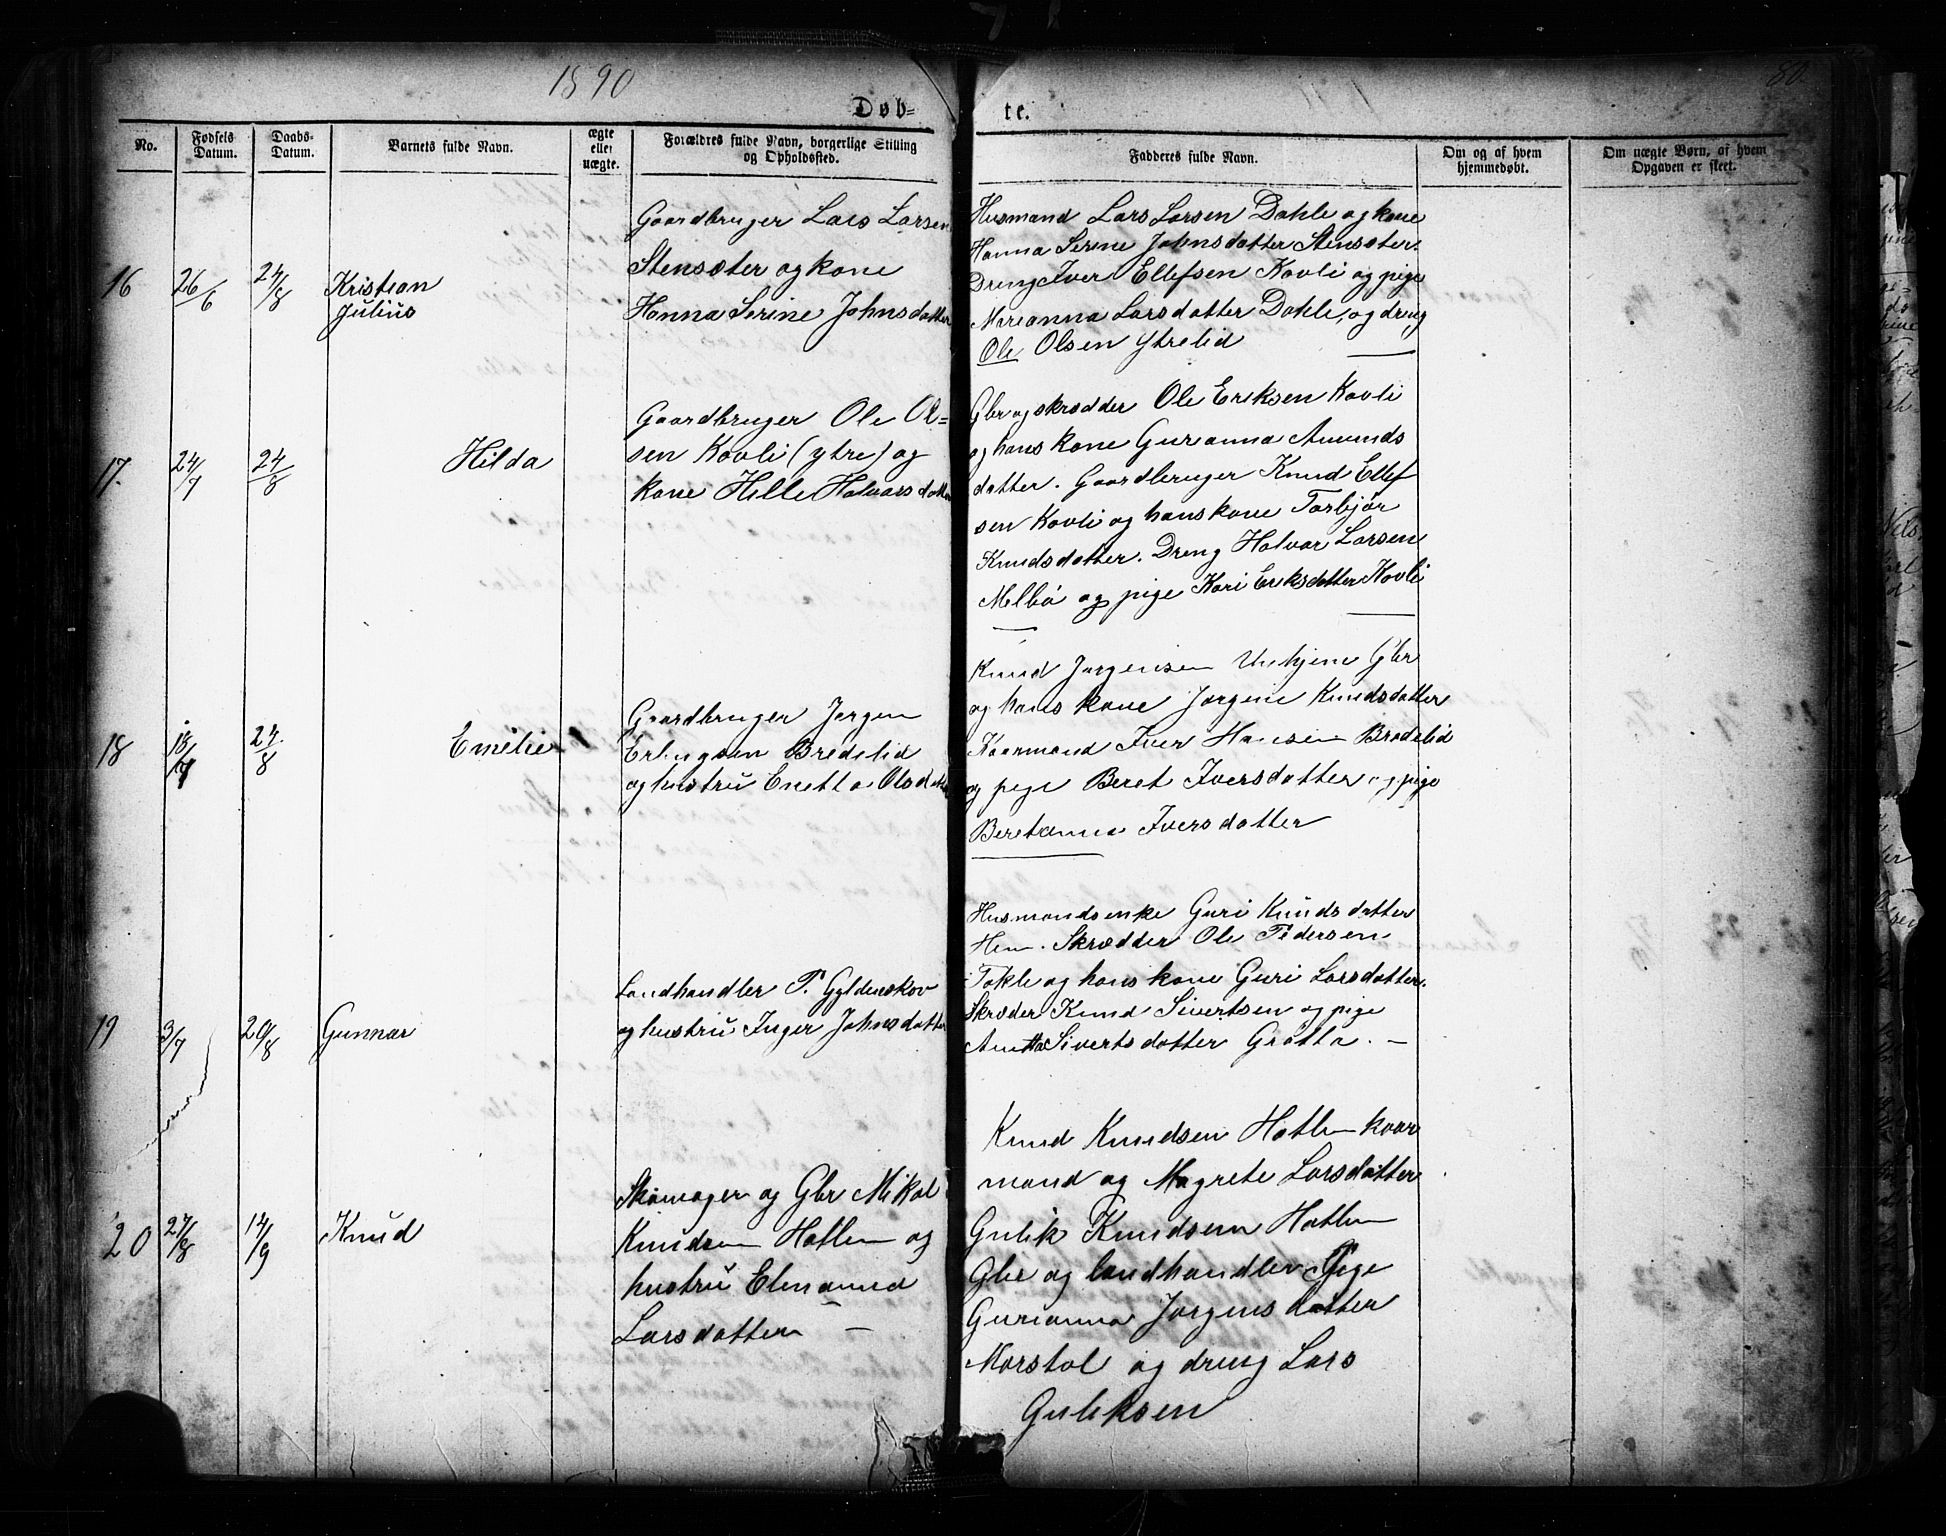 1890
80
Døb-
te.
No.
Fødsels Datum.
Daabs-Datum.
Barnets fulde Navn.
ægte eller uægte.
Forældres fulde Navn, borgerlige Stilling og Opholdssted.
Fadderes fulde Navn.
Om og af hvem hjemmedøbt.
Om uægte Børn, af hvem Opgaven er skeet.
16
26/6
24/8
Kristian
Julius
Gaardbruger Lars Larsen
Stensæter og kone
Hanna Serine Johnsdatter
Husmand Lars Larsen Dahle og kone
Hanna Serine Johnsdatter Stensæter.
Dreng Iver Ellefsen Kovli og pige
Marianna Larsdatter Dahle, og dreng
Ole Olsen Ytrelid
17.
24/7
24/8
Hilda
Gaardbruger Ole Ol=
sen Kovli (ytre) og
kone Hille Halvorsdatter
Gbr og skrædder Ole Eriksen Kovli
og hans kone Gurianna Amunds
datter. Gaardbruger Knud Ellef
sen Kovli og hans kone Torbjør
Knudsdatter. Dreng Halvor Larsen
Melbø og pige Kari Eriksdatter Kovli
18
24/8
Emelie
Gaardbruger Jørgen
Erlingsen Bredelid
og hustru Enetta Olsdatter
Knud Jørgensen Gbr
og hans kone Jørgine Knudsdatter
Kaarmand Iver Hansen Bredelid
og pige Beret Iversdatter og pige
Beretanna Iversdatter
19
3/7
29/8
Gunnar
Landhandler P. Gyldenskov
og hustru Inger Johnsdatter
Husmandsenke Guri Knudsdatter
Hem. Skrædder Ole Pedersen
Tokle og hans kone Guri Larsdatter.
Skræder Knud Sivertsen og pige
Anetta Sivertsdatter Grøtta. —
20
27/8
14/9
Knud
Skomager og Gbr Mikal
Knudsen Hatlen og
hustru Elenanna
Larsdatter —
Knud Knudsen Hatlen kaar
mand og Magrete Larsdatter
Gulik Knudsen Hatlen
Gbr og landhandler Pige
Gurianna Jørgensdatter
Morstøl og dreng Lars
Guliksen